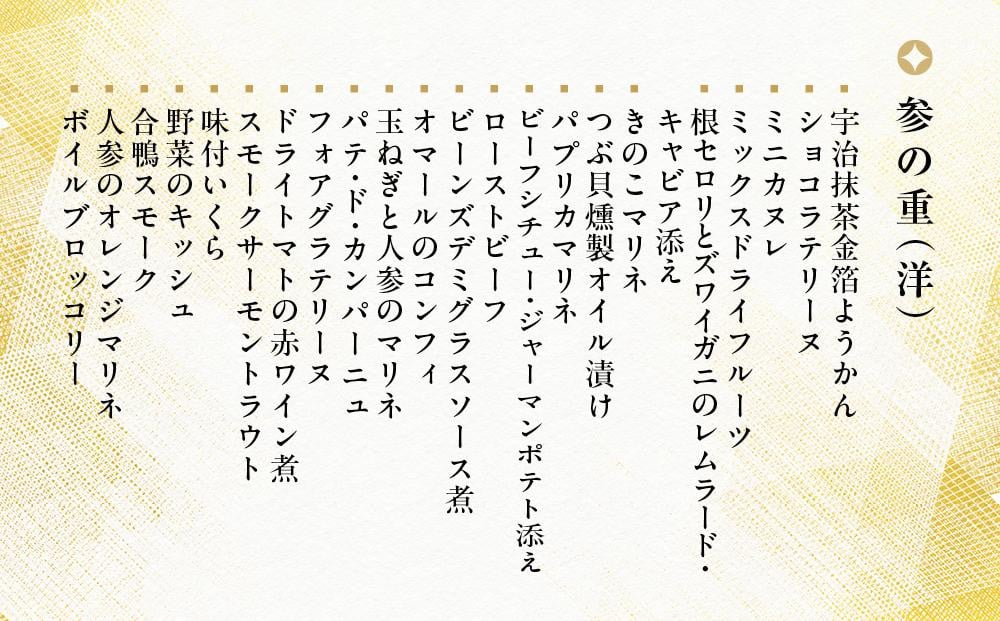 参の重(洋)
宇治抹茶金箔ようかん
ショコラテリーヌ
ミニカヌレ
ミックスドライフルーツ
根セロリとズワイガニのレムラード・
キャビア添え
きのこマリネ
つぶ貝燻製オイル漬け
パプリカマリネ
ビーフシチュー・ジャーマンポテト添え
ローストビーフ
ビーンズデミグラスソース煮
オマールのコンフィ
玉ねぎと人参のマリネ
パテ・ド・カンパーニュ
フォアグラテリーヌ
ドライトマトの赤ワイン煮
スモークサーモントラウト
味付いくら
野菜のキッシュ
合鴨スモーク
人参のオレンジマリネ
ボイルブロッコリー